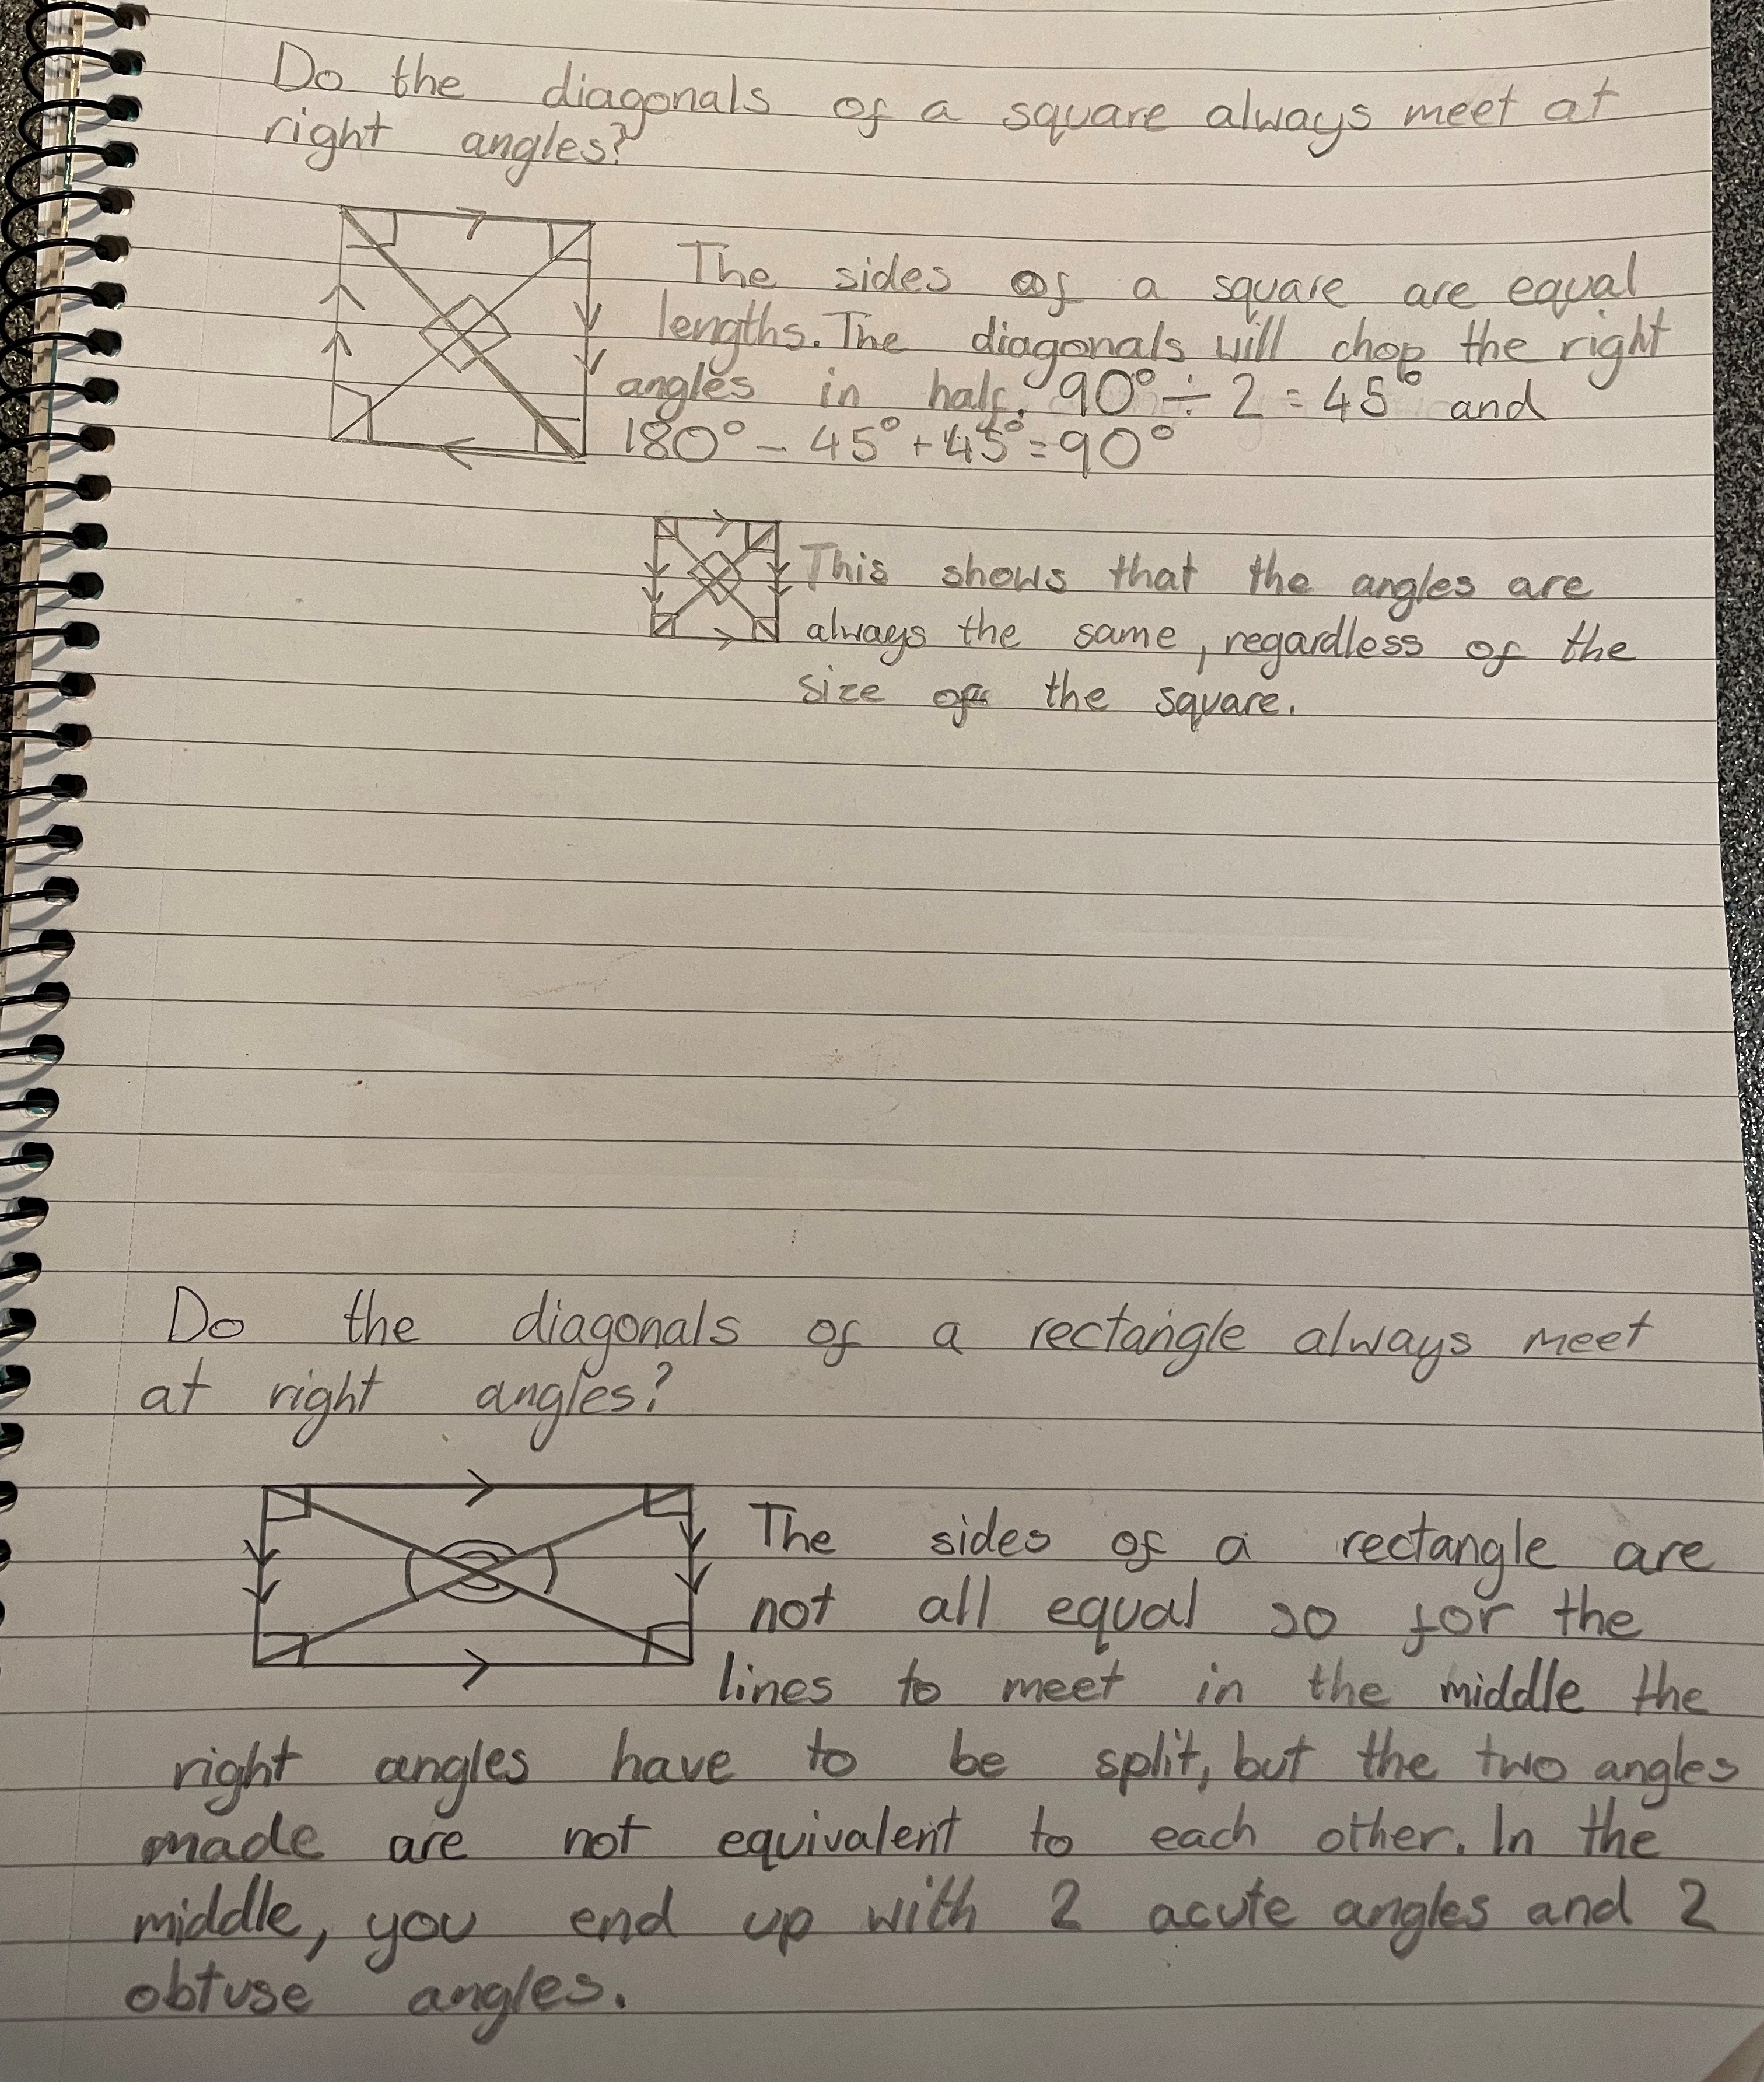 Do the diagonals of a square always meet at
right angles?
The sides of a square are equal
lengths. The diagonals will chop the right
angles in half. 90° ÷ 2 = 45° and
180° - 45° + 45° = 90°
This shows that the angles are
always the same, regardless of the
size of the square.
Do the diagonals of a rectangle always meet
at right angles?
The sides of a rectangle are
not all equal so for the
lines to meet in the middle the
right angles have to be split, but the two angles
made are not equivalent to each other. In the
middle, you end up with 2 acute angles and 2
obtuse angles.